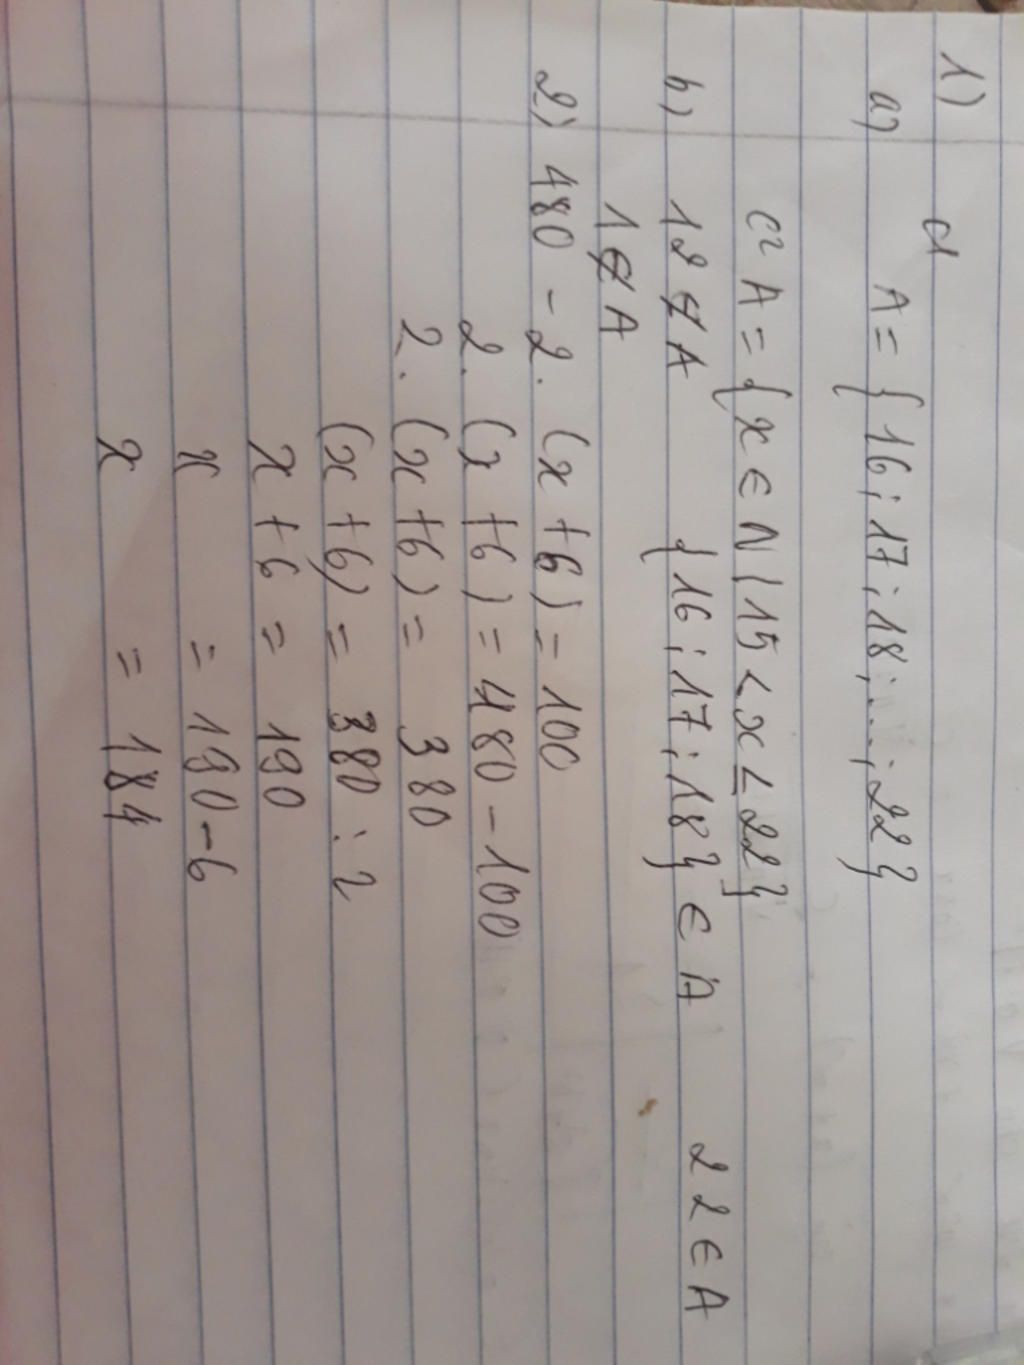 1)
a) C1 A = { 16 ; 17 ; 18 ; ... ; 22 }
C2 A = { x ∈ N | 15 < x ≤ 22 }
b) 12 ∉ A { 16 ; 17 ; 18 } ∈ A 22 ∈ A
1 ∉ A
2) 480 - 2. (x + 6) = 100
2. (x + 6) = 480 - 100
2. (x + 6) = 380
(x + 6) = 380 : 2
x + 6 = 190
x = 190 - 6
x = 184